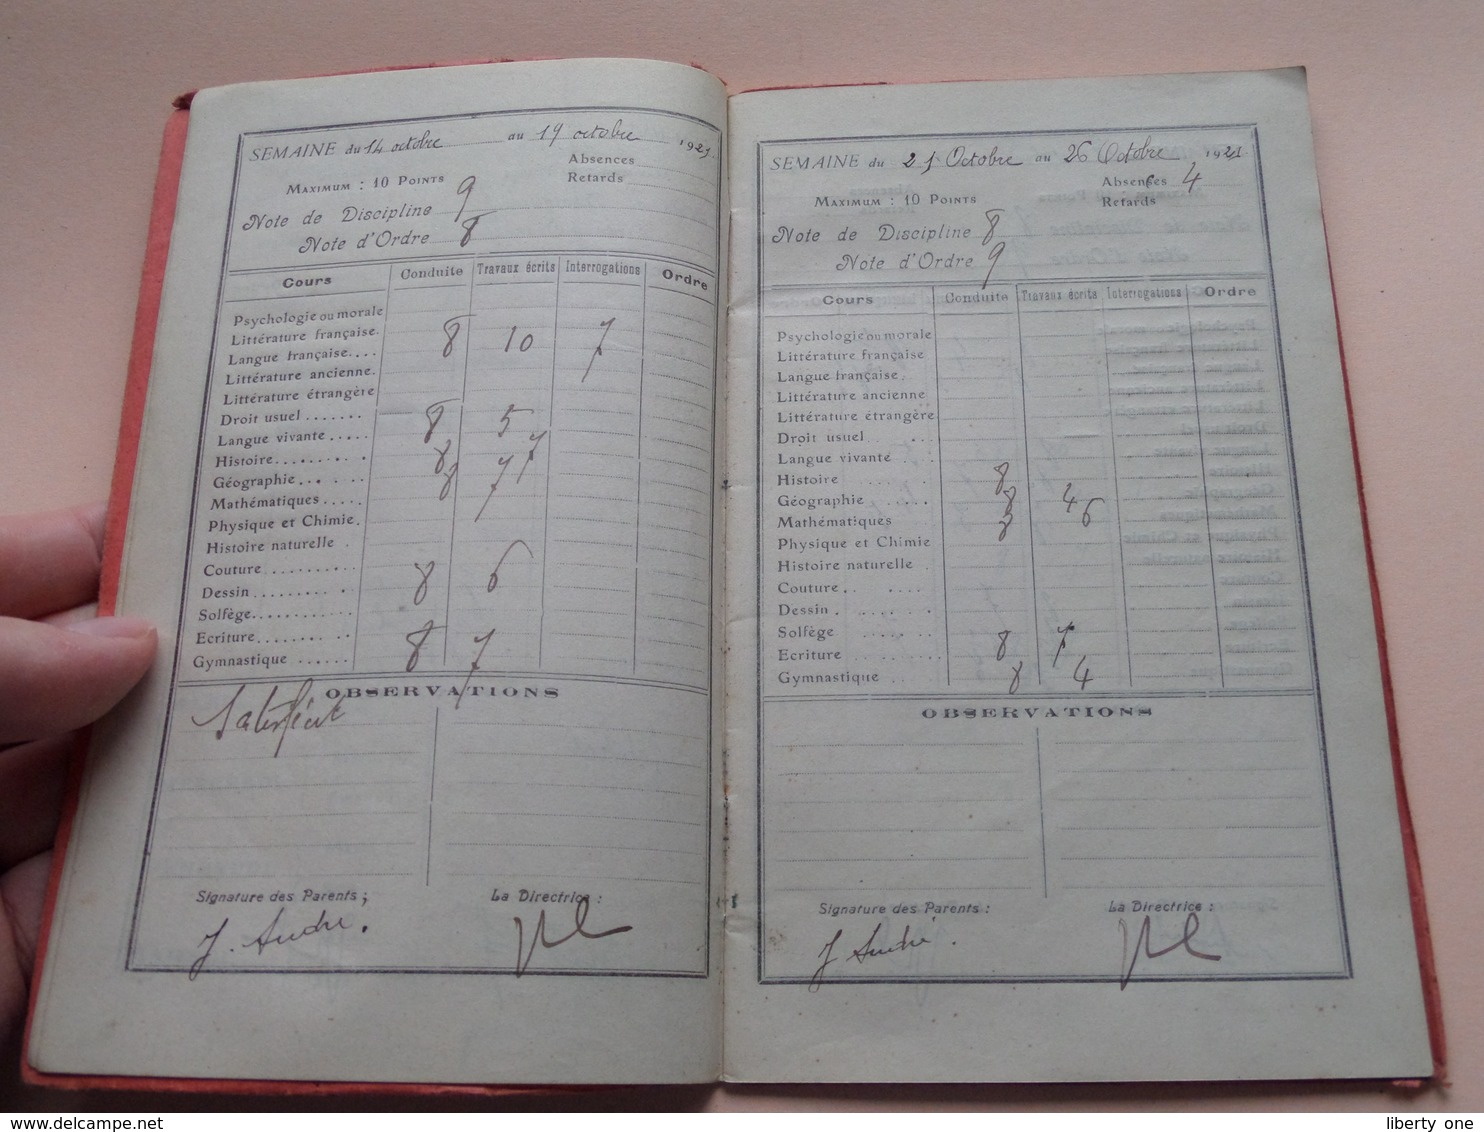 SEMAINE du 14 octobre au 19 octobre 1921
Absences
MAXIMUM : 10 POINTS Retards
Note de Discipline 9
Note d'Ordre 8
Cours Conduite Travaux écrits Interrogations Ordre
Psychologie ou morale
Littérature française. 8 10 7
Langue française....
Littérature ancienne.
Littérature étrangère
Droit usuel ....... 8 5
Langue vivante .....
Histoire.......... 8 7 7
Géographie..... 8 7
Mathématiques ....
Physique et Chimie.
Histoire naturelle .
Couture ..........
Dessin........... 8 6
Solfège...........
Ecriture.......... 8 7
Gymnastique ......
OBSERVATIONS
Satisfait
Signature des Parents ; La Directrice :
J. André.
SEMAINE du 21 Octobre au 26 Octobre 1921
Absences 4
MAXIMUM : 10 POINTS Retards
Note de Discipline 8
Note d'Ordre 9
Cours Conduite Travaux écrits Interrogations Ordre
Psychologie ou morale
Littérature française
Langue française.
Littérature ancienne
Littérature étrangère
Droit usuel
Langue vivante
Histoire 8
Géographie 8 4
Mathématiques 8 6
Physique et Chimie
Histoire naturelle .
Couture..
Dessin.
Solfège 8 7
Ecriture
Gymnastique 8 4
OBSERVATIONS
Signature des Parents : La Directrice :
J André.
delcampe.net
liberty one